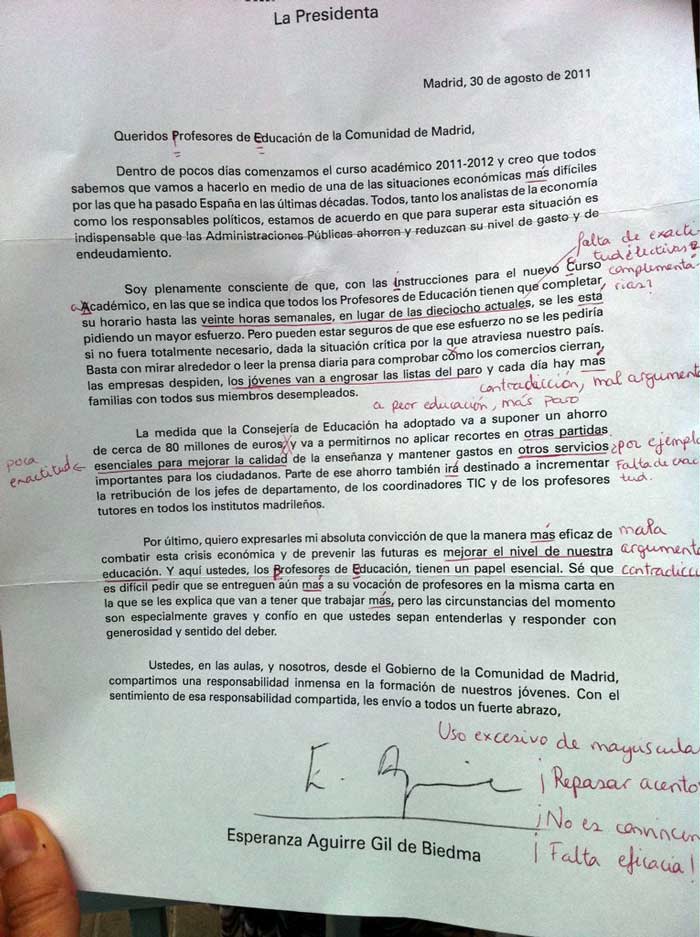 La Presidenta
Madrid, 30 de agosto de 2011
Queridos Profesores de Educación de la Comunidad de Madrid,
Dentro de pocos días comenzamos el curso académico 2011-2012 y creo que todos
sabemos que vamos a hacerlo en medio de una de las situaciones económicas más difíciles
por las que ha pasado España en las últimas décadas. Todos, tanto los analistas de la economía
como los responsables políticos, estamos de acuerdo en que para superar esta situación es
indispensable que las Administraciones Públicas ahorren y reduzcan su nivel de gasto y de
endeudamiento.
falta de exacti-
tud ¿lectivas?
complementa-
rias?
Soy plenamente consciente de que, con las Instrucciones para el nuevo Curso
a Académico, en las que se indica que todos los Profesores de Educación tienen que completar
su horario hasta las veinte horas semanales, en lugar de las dieciocho actuales, se les está
pidiendo un mayor esfuerzo. Pero pueden estar seguros de que ese esfuerzo no se les pediría
si no fuera totalmente necesario, dada la situación crítica por la que atraviesa nuestro país.
Basta con mirar alrededor o leer la prensa diaria para comprobar cómo los comercios cierran,
las empresas despiden, los jóvenes van a engrosar las listas del paro y cada día hay más
familias con todos sus miembros desempleados.
contradicción, mal argument
a peor educación, más paro
La medida que la Consejería de Educación ha adoptado va a suponer un ahorro
de cerca de 80 millones de euros, y va a permitirnos no aplicar recortes en otras partidas
esenciales para mejorar la calidad de la enseñanza y mantener gastos en otros servicios
importantes para los ciudadanos. Parte de ese ahorro también irá destinado a incrementar
la retribución de los jefes de departamento, de los coordinadores TIC y de los profesores
tutores en todos los institutos madrileños.
poca
exactitud
¿por ejemplo
Falta de exac
tud.
Por último, quiero expresarles mi absoluta convicción de que la manera más eficaz de
combatir esta crisis económica y de prevenir las futuras es mejorar el nivel de nuestra
educación. Y aquí ustedes, los Profesores de Educación, tienen un papel esencial. Sé que
es difícil pedir que se entreguen aún más a su vocación de profesores en la misma carta en
la que se les explica que van a tener que trabajar más, pero las circunstancias del momento
son especialmente graves y confío en que ustedes sepan entenderlas y responder con
generosidad y sentido del deber.
mala
argumenta
contradicci
Ustedes, en las aulas, y nosotros, desde el Gobierno de la Comunidad de Madrid,
compartimos una responsabilidad inmensa en la formación de nuestros jóvenes. Con el
sentimiento de esa responsabilidad compartida, les envío a todos un fuerte abrazo,
Uso excesivo de mayúscula
¡Repasar acento
¡No es convincen
¡Falta eficacia!
E. Aguirre
Esperanza Aguirre Gil de Biedma